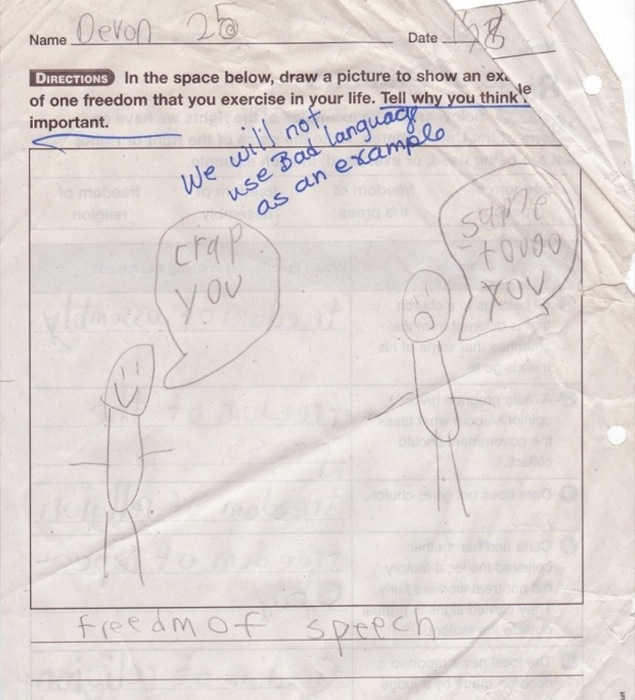 Name Devon 25 Date 1/28
DIRECTIONS In the space below, draw a picture to show an exa le
of one freedom that you exercise in your life. Tell why you think i
important.
We will not
use Bad language
as an example
crap
you
same
toooo
you
freedm of speech